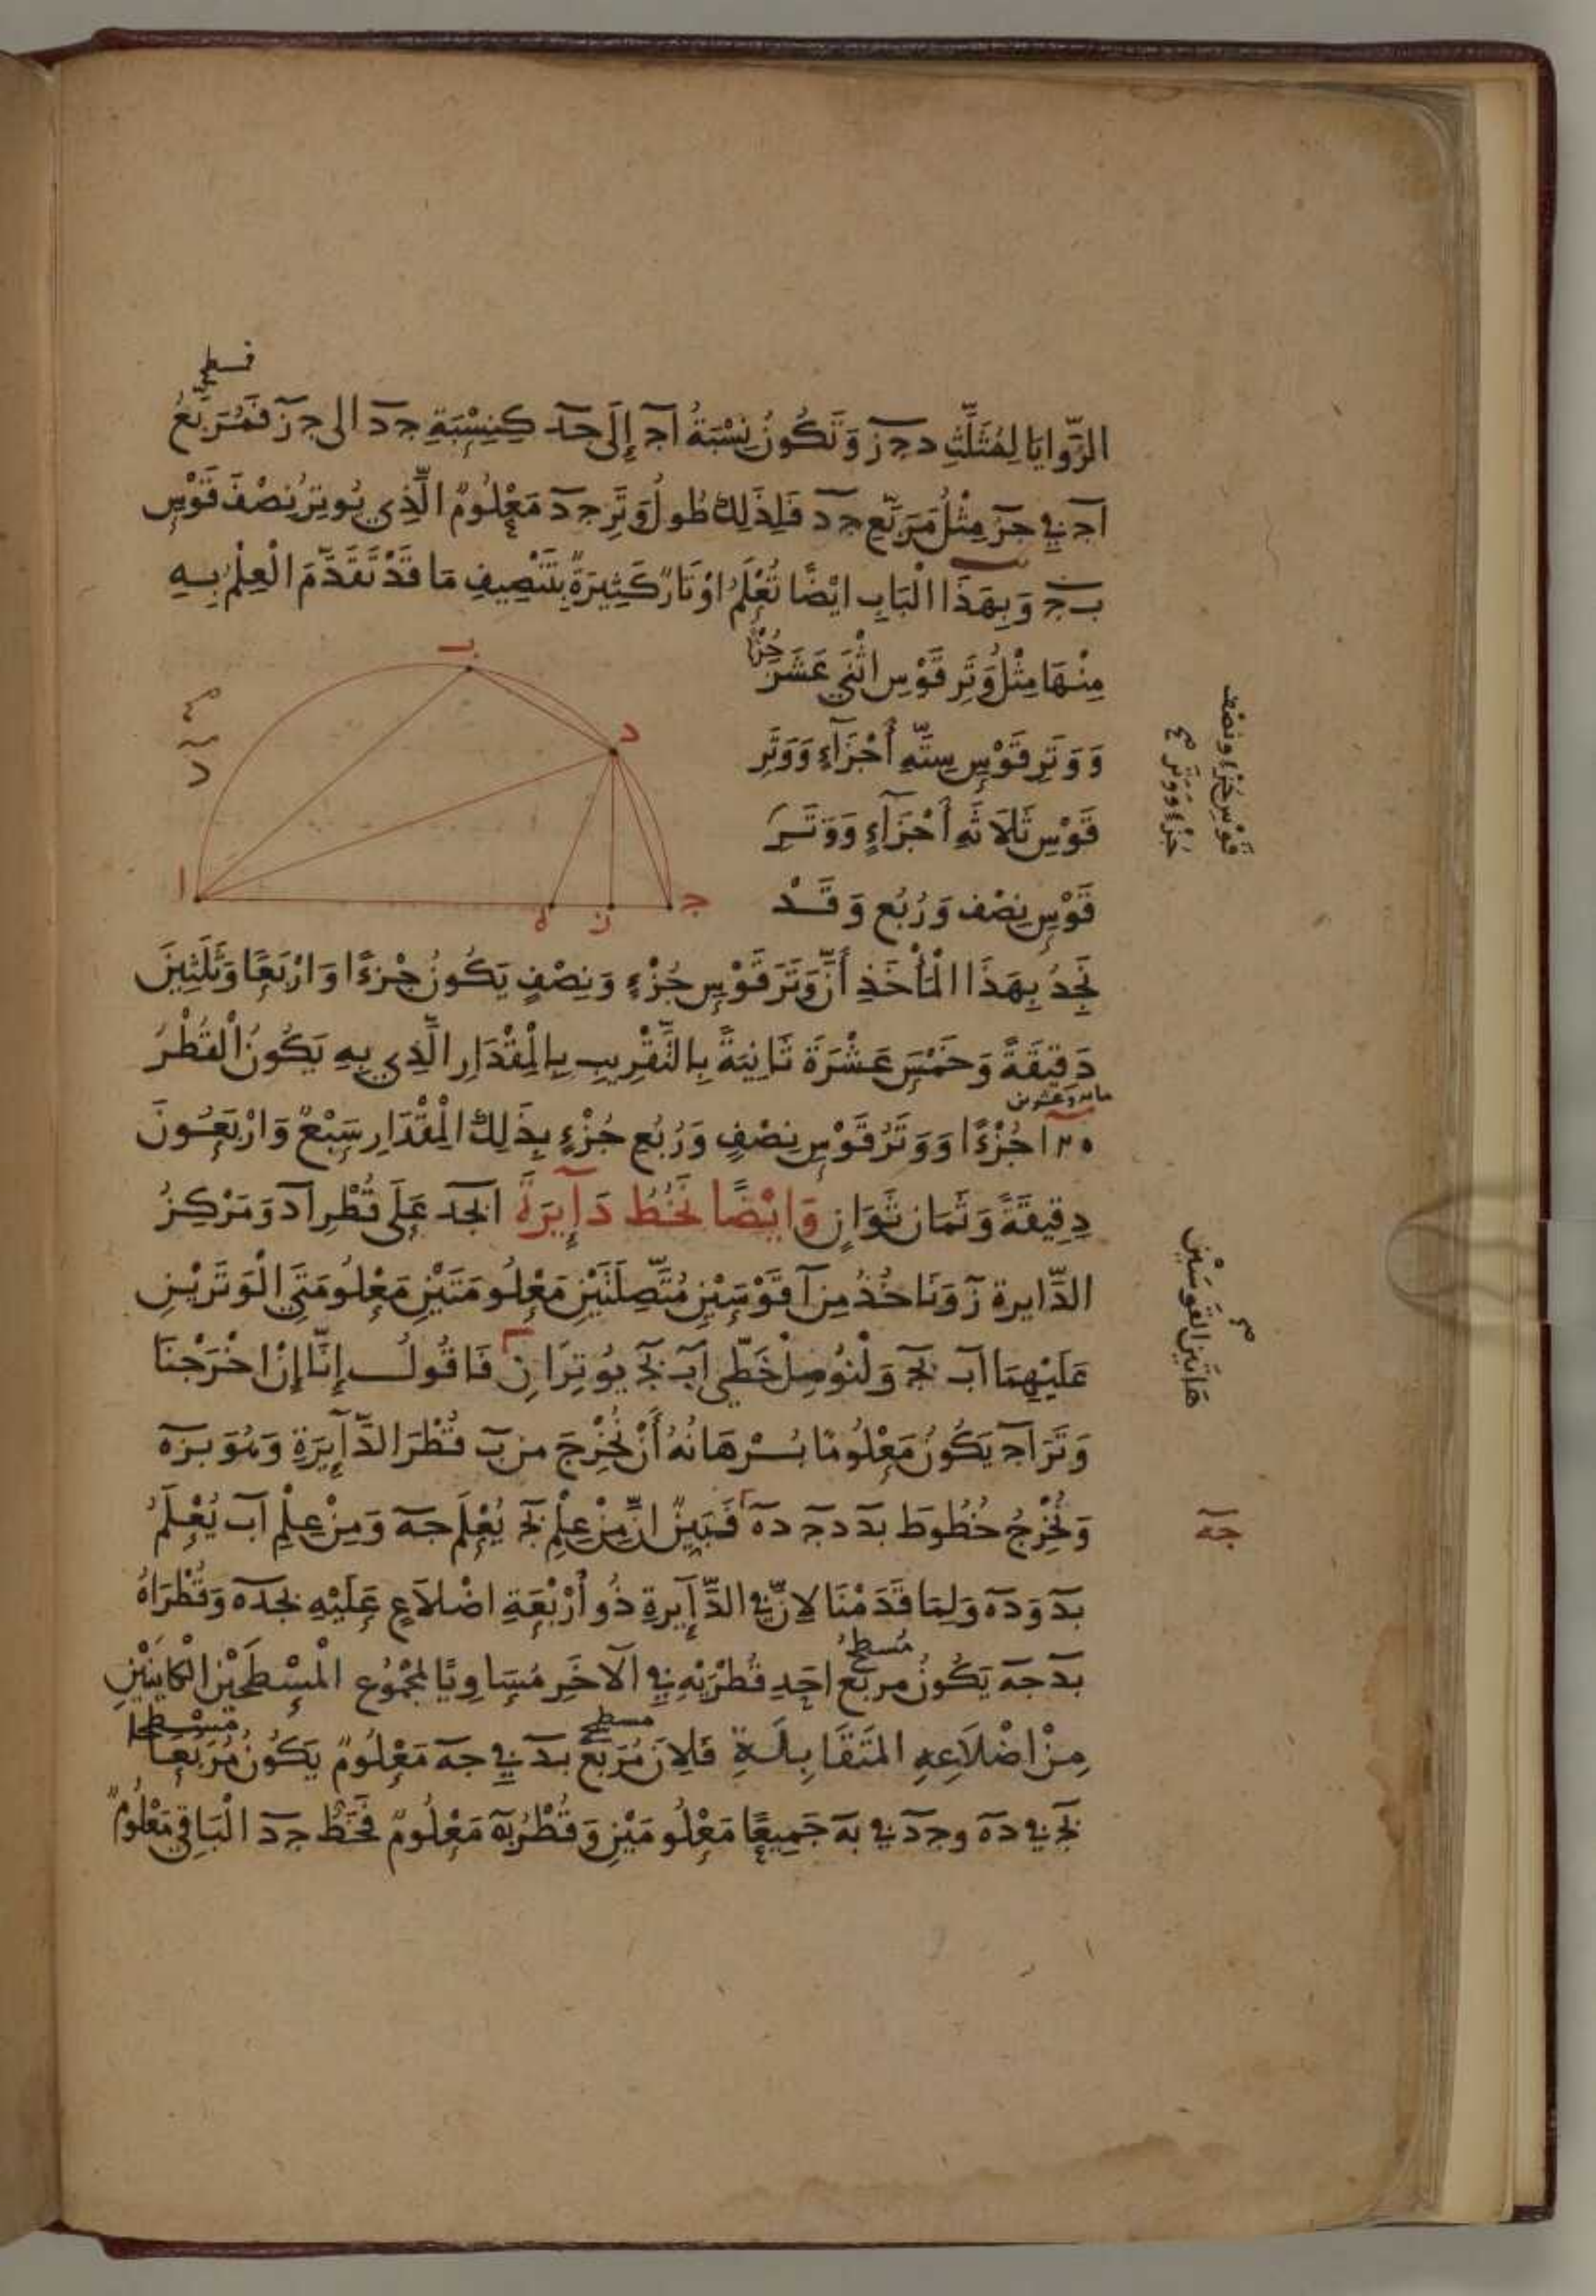 فسطح
الزَّوايَا لِمُثَلَّثِ دجز وَتَكُونُ نِسْبَةُ اج إِلَى جد كَنِسْبَةِ جد الى جز فَمُرَبَّعُ
اج فِي جز مِثْلُ مُرَبَّعِ جد فَلِذَلِكَ طُولُ وَتَرِ جد مَعْلُومٌ الَّذِي يُوتِرُ نِصْفَ قَوْسِ
بج وَبِهَذَا الْبَابِ ايْضًا تُعْلَمُ اوْتَارٌ كَثِيرَةٌ بِتَنْصِيفِ مَا قَدْ تَقَدَّمَ الْعِلْمُ بِهِ
مِنْهَا مِثْلُ وَتَرِ قَوْسِ اثْنَيْ عَشَرَ جُزْءًا
وَوَتَرِ قَوْسِ سِتَّةِ أَجْزَآءٍ وَوَتَرِ
قَوْسِ ثَلَاثَةِ أَجْزَآءٍ وَوَتَرِ
قَوْسِ نِصْف وَرُبُع وَقَدْ
قَوْسِ جُزْءٍ وَنِصْف
جُزْءٍ وَوَتَرِ
ب
د
ا
ه
ز
ج
نَجِدُ بِهَذَا الْمَأْخَذِ أَنَّ وَتَرَ قَوْسِ جُزْءٍ وَنِصْفٍ يَكُونُ جُزءًا وَارْبَعًا وَثَلَثِينَ
دَقِيقَةً وَخَمْسَ عَشْرَةَ ثَانِيَةً بِالتَّقْرِيبِ بِالْمِقْدَارِ الَّذِي بِهِ يَكُونُ الْقُطْرُ
مائة وعشرين
١٢٠ جُزْءًا وَوَتَرُ قَوْسِ نِصْفٍ وَرُبُعِ جُزْءٍ بِذَلِكَ الْمِقْدَارِ سَبْعٌ وَارْبَعُونَ
دَقِيقَةً وَثَمَانِ ثَوَانٍ وَايْضًا نَخُطُّ دَآيِرَةَ ابجد عَلَى قُطْرِ اد وَمَرْكِزُ
الدَّايرة ز وَنَاخُذُ مِن ا قَوْسَيْنِ مُتَّصِلَتَيْنِ مَعْلُومَتَيْنِ مَعْلُومَتَي الْوَتَرَيْنِ
عَلَيْهِمَا اب بج وَلْنُوصِلْ خَطَّي اب بج يُوتِرَانِ فَاقُولُ إِنَّا إِنْ اخْرَجْنَا
هَاتَيْنِ القَوْسَيْنِ
وَتَرَ اج يَكُونُ مَعْلُومًا بُرْهَانُهُ أَنْ نُخْرِجَ من ب قُطْرَ الدَّآيِرَةِ وَهُوَ بزه
وَنُخْرِجُ خُطُوطَ بد دج ده فَبَيِّنٌ انَّ مِنْ عِلْمِ بج يُعْلَم جه وَمِنْ عِلْمِ اب يُعْلَمُ
جه
بد وَده وَلِمَا قَدَمْنَا لِانَّ فِي الدَّآيرة ذُو أَرْبَعَةِ اضْلَاعٍ عَلَيْهِ بجده وَقُطْرَاهُ
مُسطحُ
بد جه يَكُونُ مربع احَدِ قُطْرَيْهِ فِي الآخَرِ مُسَاوِيًا لِمَجْمُوعِ الْمُسطَحَيْنِ الكَاينَيْنِ
مسطح مسطحا
مِنْ اضْلَاعِهِ المتَقَابِلَةِ فَلِانَ مُرَبَّعَ بد فِي جه مَعْلُومٌ يَكُونُ مُرَبَّعَا
بج في ده وجد في به جَمِيعًا مَعْلُومَيْنِ وَقُطْرُ به مَعْلُومٌ فَخَطُّ جد الْبَاقِي مَعْلُومٌ